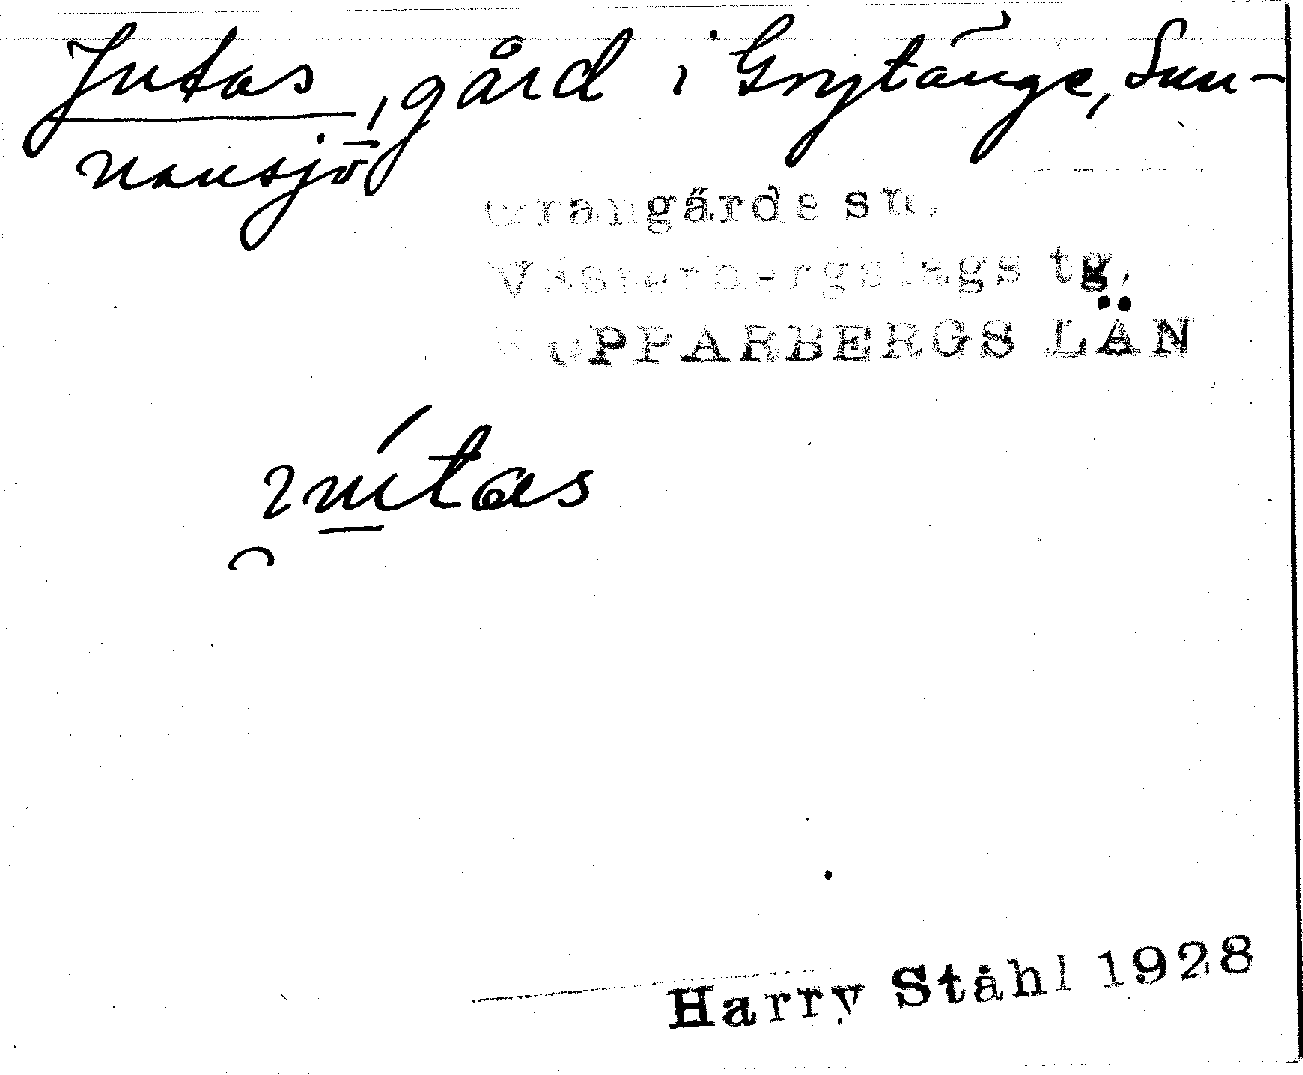 Jutas, gård i Grytänge, Sun-
nansjö
Grangärde sn.
Västerbergslags tg.
KOPPARBERGS LÄN
Harry Ståhl 1928